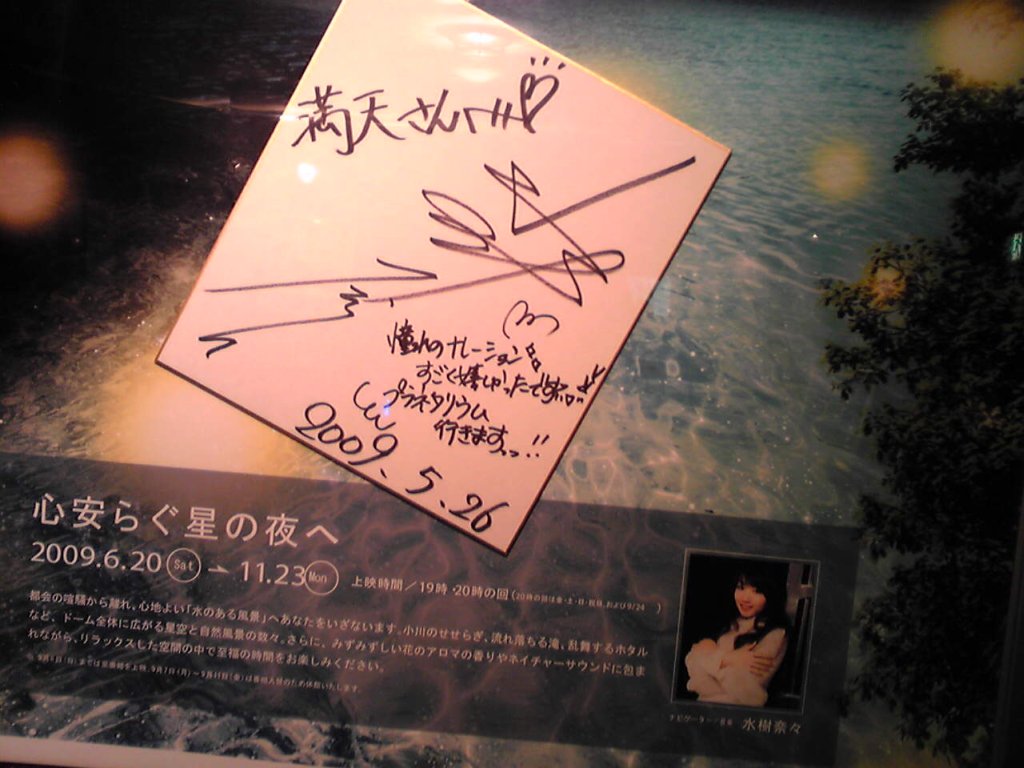 満天さんへ
憧れのナレーション
すごく嬉しかったです
プラネタリウム
行きますっ!!
2009.5.26
心安らぐ星の夜へ
2009.6.20 Sat → 11.23 Mon 上映時間/19時・20時の回(20時の回は金・土・日・祝日、および9/24 )
都会の喧騒から離れ、心地よい「水のある風景」へあなたをいざないます。小川のせせらぎ、流れ落ちる滝、乱舞するホタル
など、ドーム全体に広がる星空と自然風景の数々。さらに、みずみずしい花のアロマの香りやネイチャーサウンドに包ま
れながら、リラックスした空間の中で至福の時間をお楽しみください。
水樹奈々